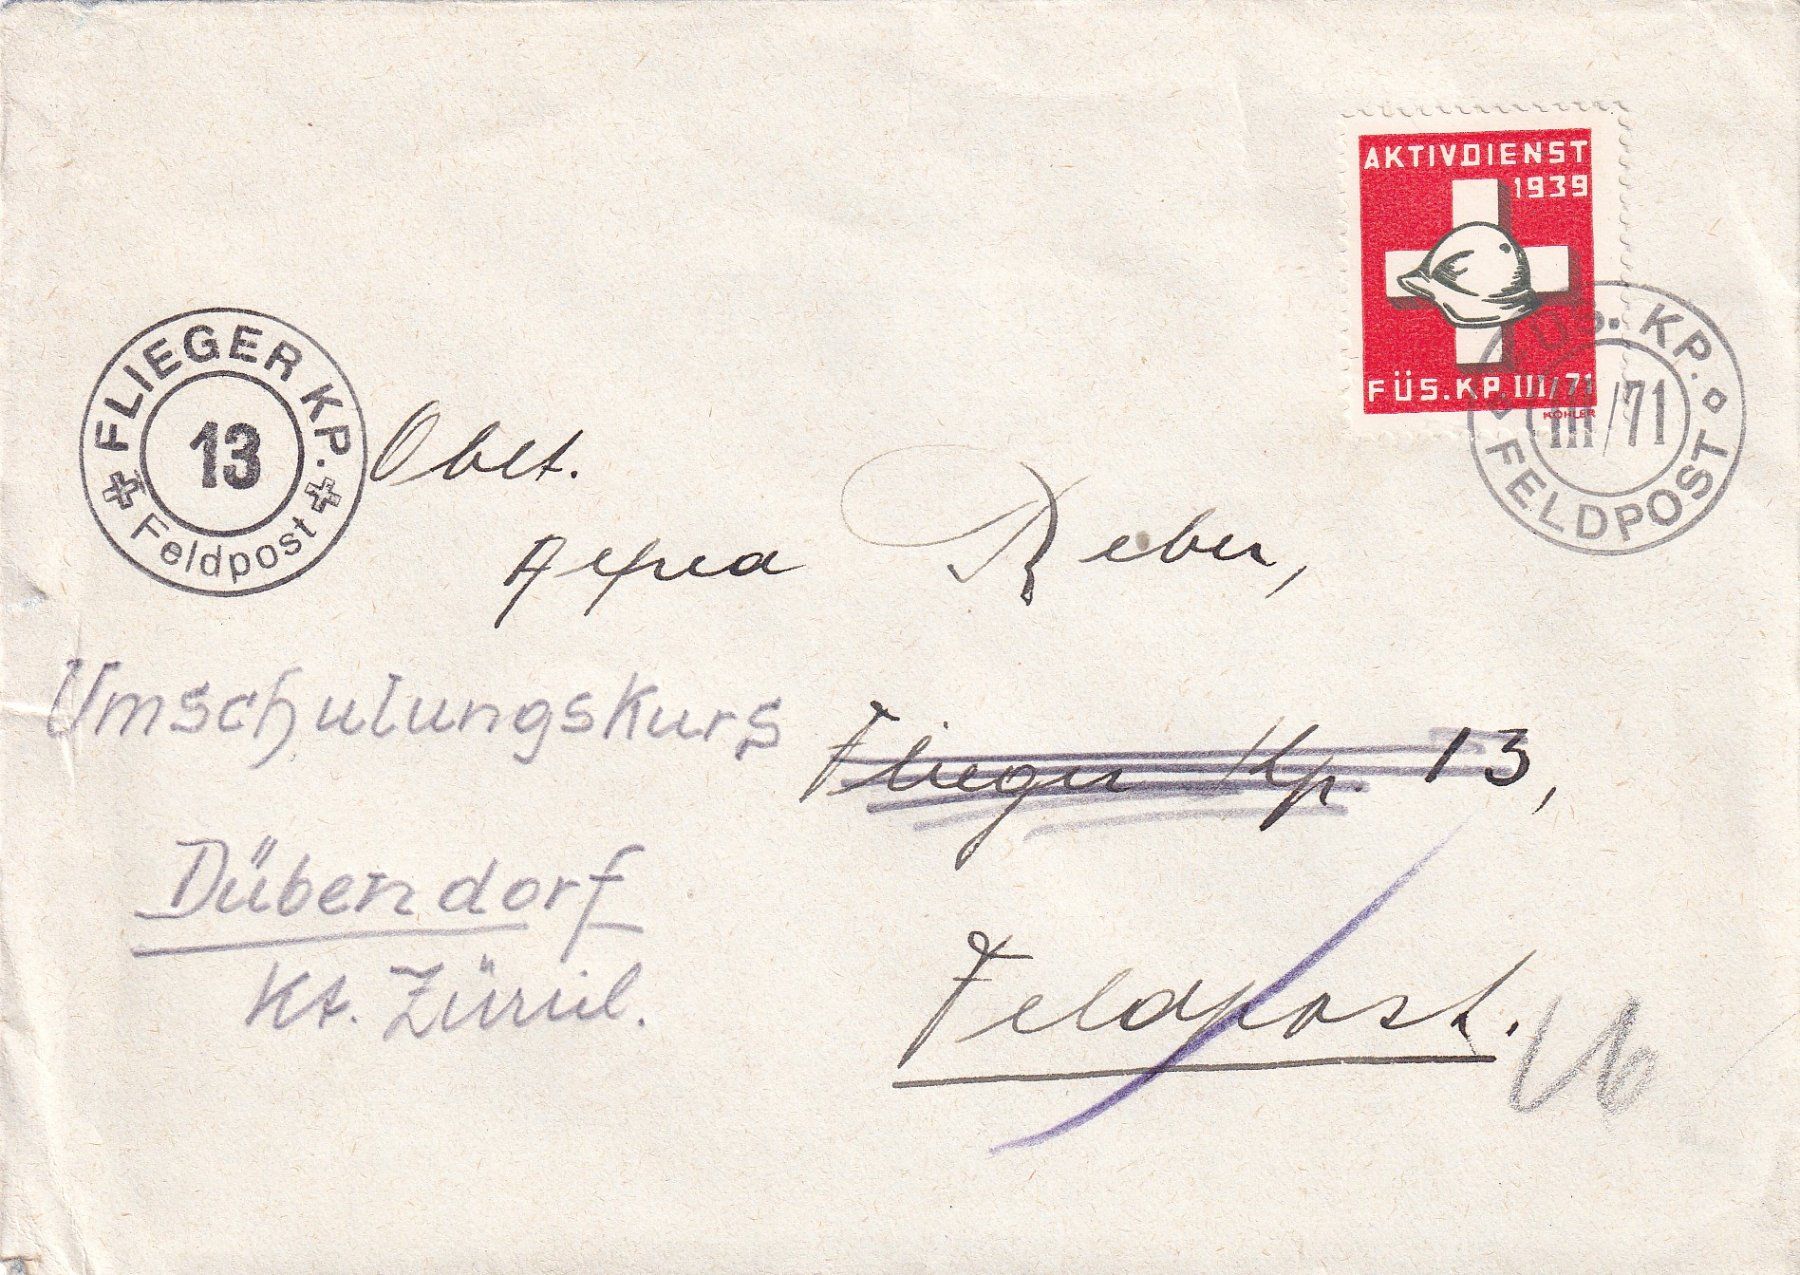 AKTIVDIENST
1939
FÜS. KP. III/71
KOHLER
FÜS. KP.
III/71
FELDPOST
FLIEGER KP.
13
Feldpost
Oblt.
Reber,
Flieger Kp. 13,
Feldpost.
Umschulungskurs
Dübendorf
Kt. Zürich.